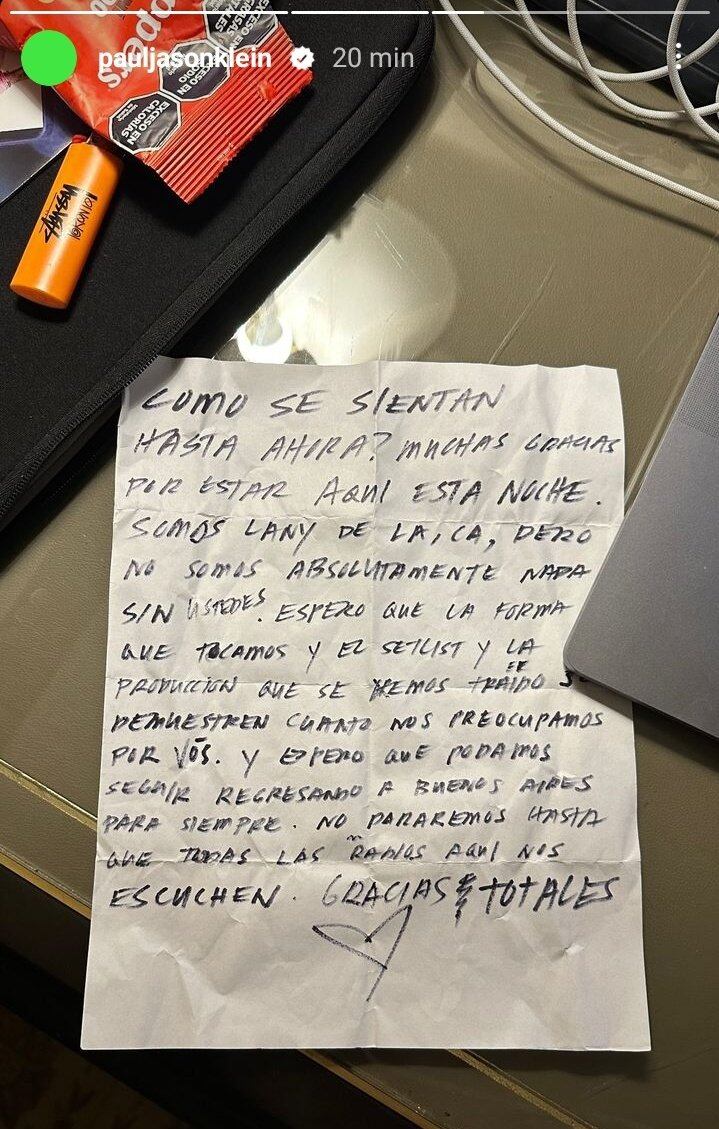 pauljasonklein 20 min
ppers
EXCESO EN
CALORÍAS
EXCESO EN
SODIO
COMO SE SIENTAN
HASTA AHORA? MUCHAS GRACIAS
POR ESTAR AQUI ESTA NOCHE.
SOMOS LANY DE LA, CA, PERO
NO SOMOS ABSOLUTAMENTE NADA
SIN USTEDES. ESPERO QUE LA FORMA
QUE TOCAMOS Y EL SETLIST Y LA
PRODUCCION QUE SE HEMOS TRAÍDO SE
DEMUESTREN CUANTO NOS PREOCUPAMOS
POR VŌS. Y ESPERO QUE PODAMOS
SEGUIR REGRESANDO A BUENOS AIRES
PARA SIEMPRE. NO PARAREMOS HASTA
QUE TODAS LAS RADIOS AQUI NOS
ESCUCHEN. GRACIAS TOTALES